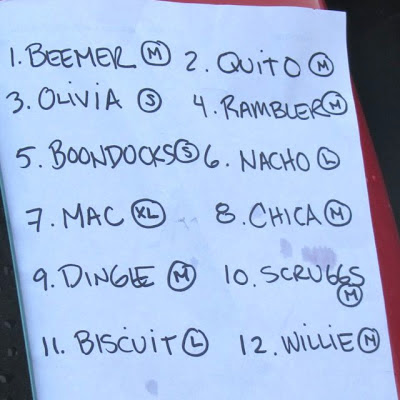 1. BEEMER M 2. QUITO M
3. OLIVIA S 4. RAMBLER M
5. BOONDOCKS S 6. NACHO L
7. MAC XL 8. CHICA M
9. DINGLE M 10. SCRUGGS M
11. BISCUIT L 12. WILLIE M